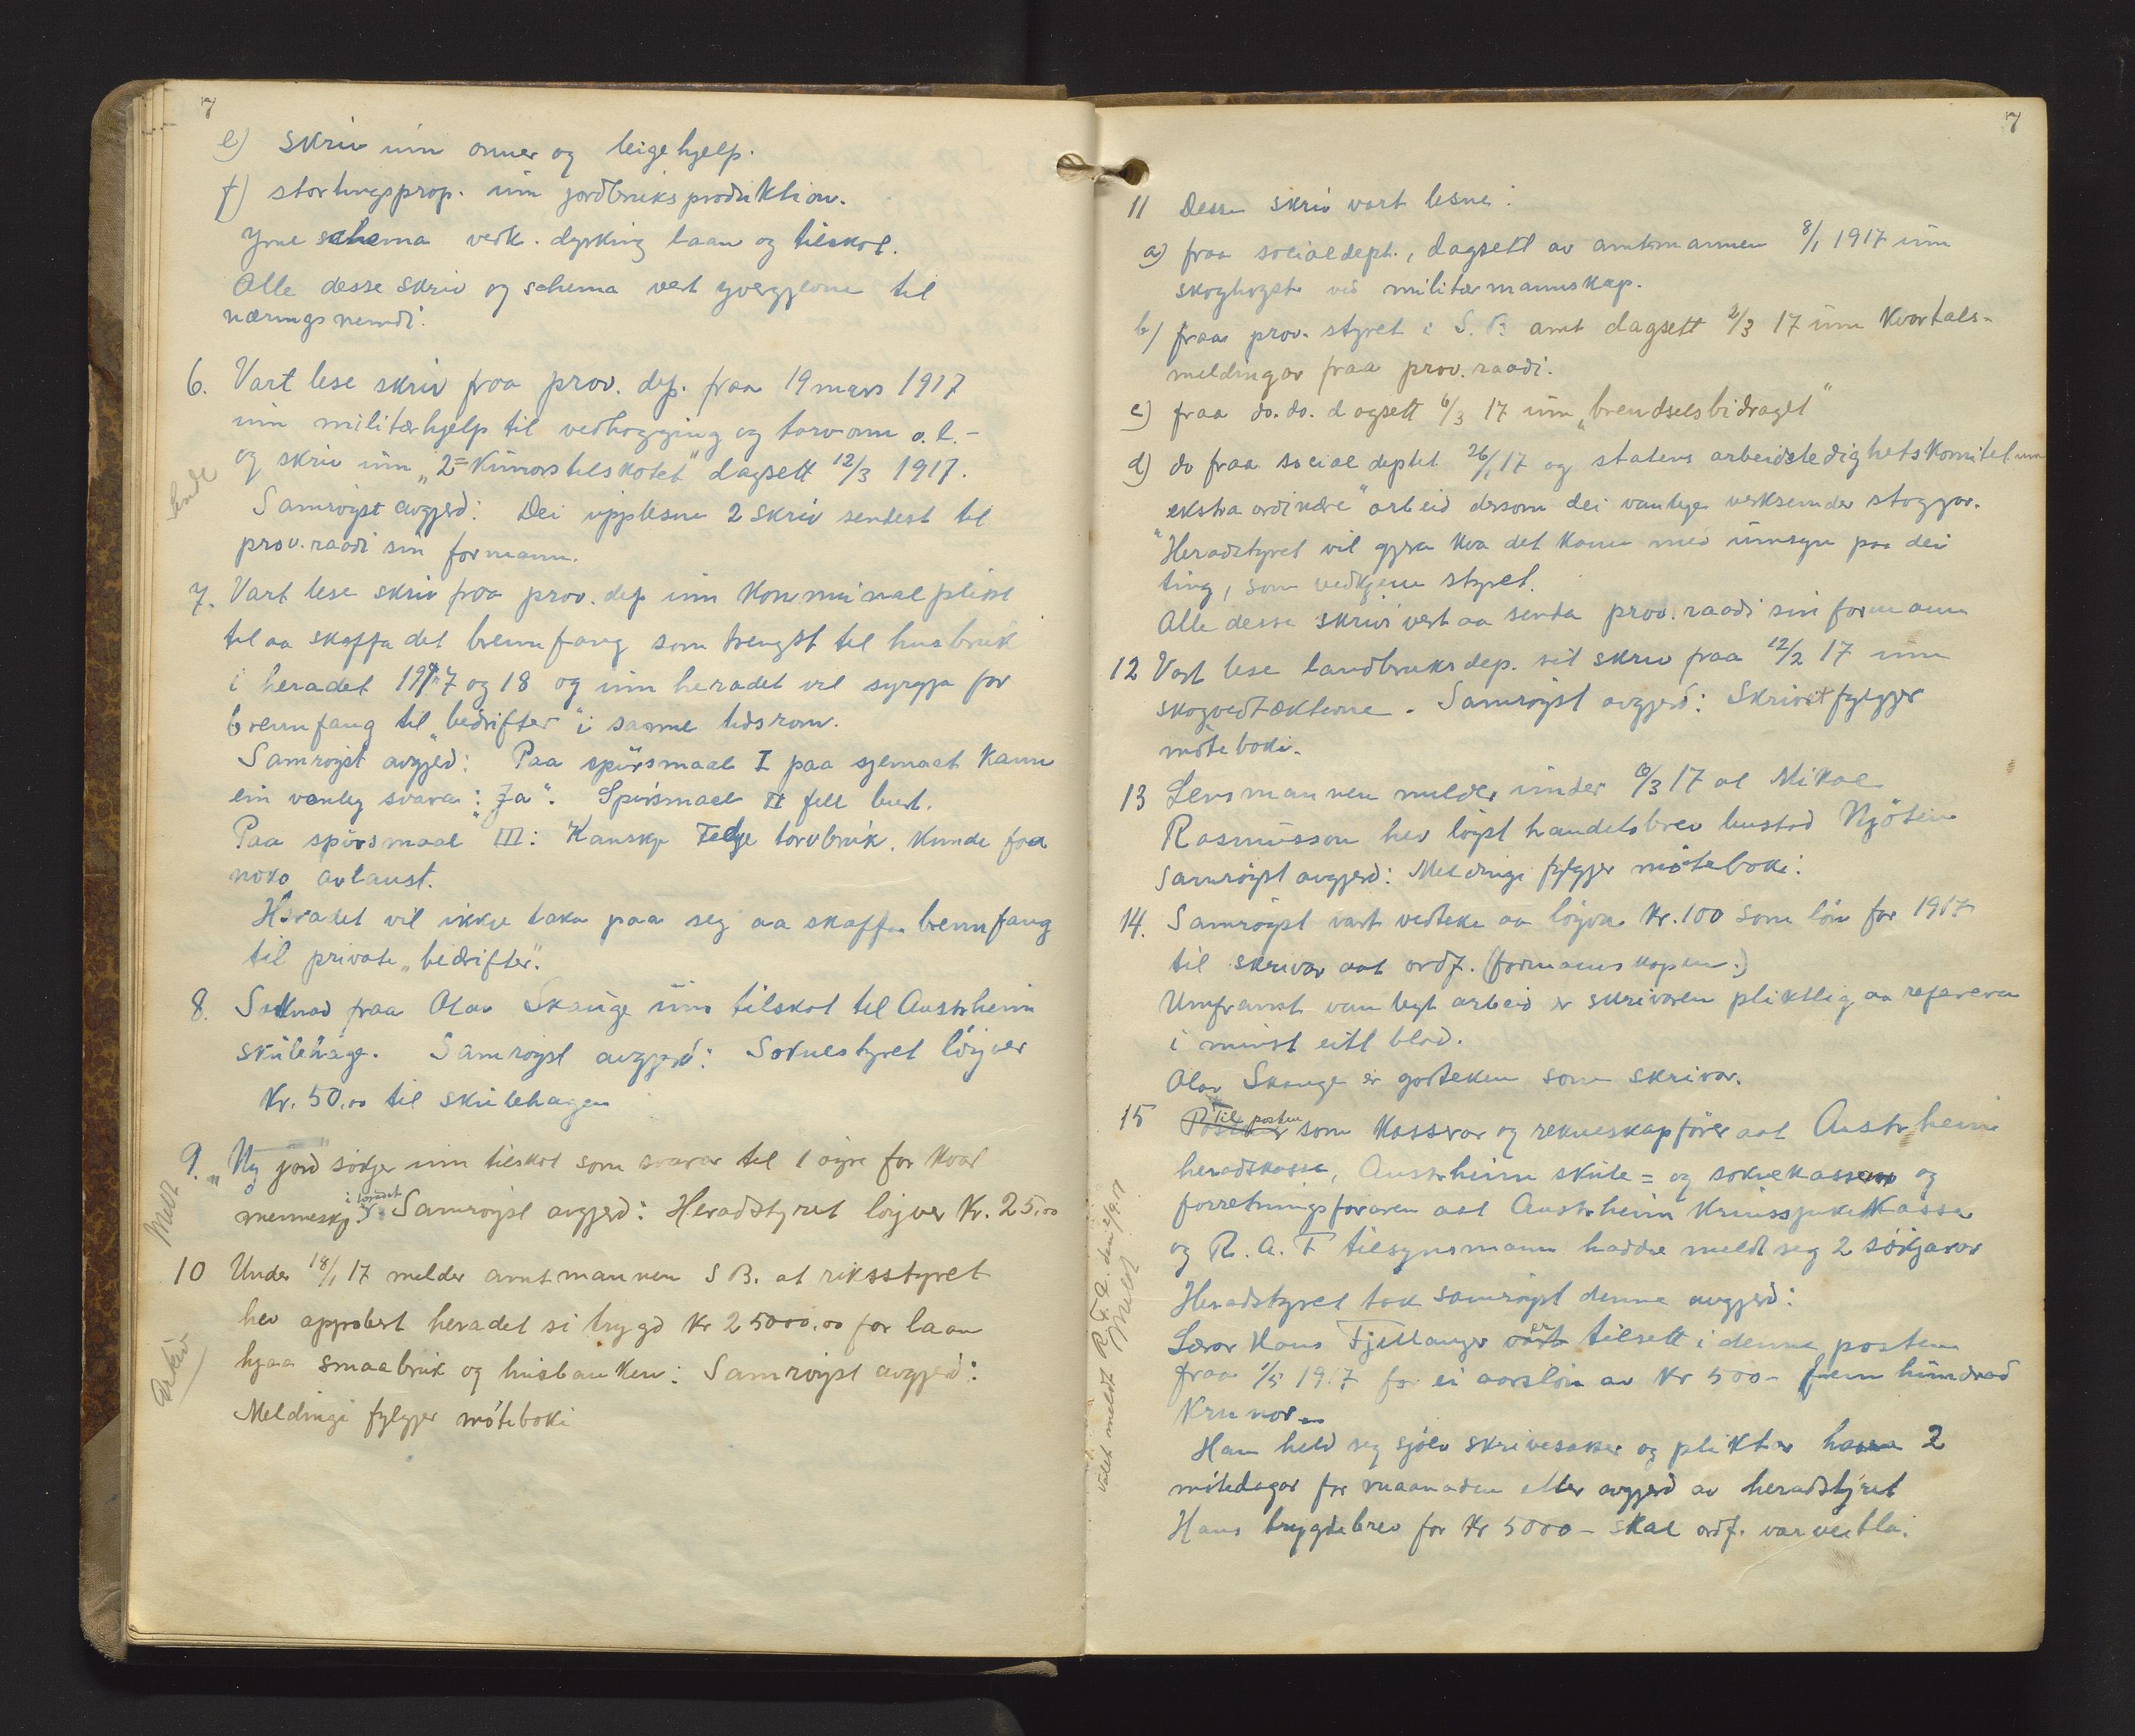 7
e) Skriv um onner og leigehjelp.
f) stortingsprop. um jordbruksproduktion.
Ymse schema vedk. dyrking laan og tilskot.
Alle desse skriv og schema vert yvergjevne til
næringsnemdi.
6. Vart lese skriv fraa prov. dep. fraa 19 mars 1917
um militærhjelp til vedhogging og torvonn o.l.-
og skriv um „2= Kunors tilskotet" dagsett 12/3 1917.
Sendt
Samrøyst avgjerd: Dei upplesne 2 skriv sendest til
prov.raadi sin formann.
7. Vart lese skriv fraa prov. dep um kommunal plikt
til aa skaffa det brennfang som trengst til husbruk
i heradet 1917 og 18 og um heradet vil syrgja for
brennfang til „bedrifter" i samme tidsrom.
Samrøyst avgjerd: Paa spursmaal I paa sjemaat kann
ein vanleg svara: „Ja". Spursmaal II fell burt.
Paa spursmaal III: Kanskje Fedje torvbruk kunde faa
noko avlaust.
Heradet vil ikkje taka paa seg aa skaffa brennfang
til private „bedrifter".
8. Søknad fraa Olav Skauge um tilskot til Austrheim
skulehage. Samrøyst avgjerd: Soknestyret løyver
Kr. 50.00 til skulehagen
9. „Ny jord" søkjer um tilskot som svarar til 1 øyre for kvar
i heradet
menneskje. Samrøyst avgjerd: Heradstyret løyver Kr. 25.00
Meldt
10 Under 18/1 17 melder amtmannen S B. at riksstyret
hev approbert heradet si trygd Kr 25000.00 for laan
hjaa smaabruk og husbanken: Samrøyst avgjerd:
Arkiv
Meldingi fylgjer møteboki
7
11 Desse skriv vart lesne:
a) fraa socialdept., dagsett av amtmannen 8/1 1917 um
skoghogst ved militærmannskap.
b) fraa prov. styret i S. B. amt dagsett 2/3 17 um kvartals-
meldingar fraa prov. raadi.
c) fraa do. do. dagsett 6/3 17 um „brendselsbidraget"
d) do fraa social deptet 26/1 17 og statens arbeidsledighetskomite um
ekstra ordinære" arbeid dersom dei vanlege verksemder stoggar.
"Heradstyret vil gjera kva det kann med umsyn paa dei
ting, som vedkjem styret.
Alle desse skriv vert aa senda prov. raadi sin formann
12 Vart lese landbruksdep. sit skriv fraa 12/2 17 um
skogvedtækterne. Samrøyst avgjerd: Skrivet fylgjer
møteboki.
13 Lensmannen melder under 6/3 17 at Mikal
Rasmusson hev løyst handelsbrev bustad Njøten
Samrøyst avgjerd: Meldingi fylgjer møteboki.
14. Samrøyst vart vedteke aa løyva Kr. 100 som løn for 1917
til skrivar aat ordf. (formannskapen.)
Umframt vanlegt arbeid er skrivaren pliktig aa referera
i minst eitt blad.
Olav Skauge er godteken som skrivar.
15 Til posten som kasserar og rekneskapfører aat Austrheim
heradskasse, Austrheim skule= og soknekassa og
forretningsføraren aat Austrheim Krinssjukekasse
og R. A. F tilsynsmann hadde meldt seg 2 søkjarar
Heradstyret tok samrøyst denne avgjerd:
Lærar Hans Fjellanger er tilsett i denne posten
fraa 1/5 1917 for ei aarsløn av Kr 500- fem hundrad
Krunor.
Han held seg sjølv skrivesaker og pliktar hava 2
møtedagar for maanaden etter avgjerd av heradstyret
Hans trygdebrev for Kr 5000- skal ordf. varveitla.
meldt R. F. A. den
Meldt